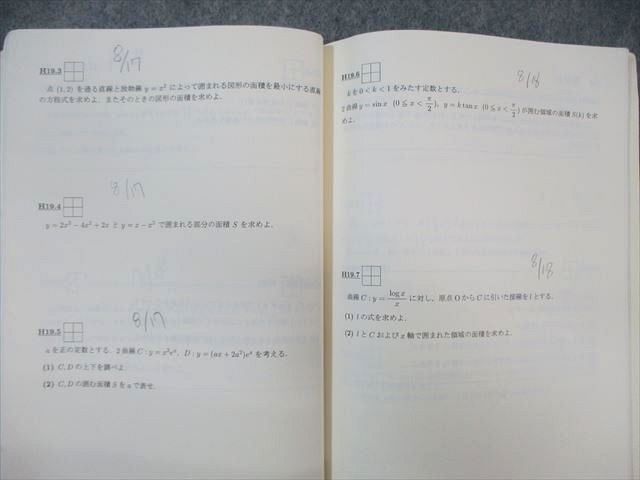 H19.3
8/17
点 (1, 2) を通る直線と放物線 y = x² によって囲まれる図形の面積を最小にする直線
の方程式を求めよ．またそのときの図形の面積を求めよ．
H19.4
8/17
y = 2x³ − 4x² + 2x と y = x − x² で囲まれる部分の面積 S を求めよ．
H19.5
8/17
a を正の定数とする．2 曲線 C : y = x²eˣ, D : y = (ax + 2a²)eˣ を考える．
(1) C, D の上下を調べよ．
(2) C, D の囲む面積 S を a で表せ．
H19.6
8/18
k を 0 < k < 1 をみたす定数とする．
2 曲線 y = sin x (0 ≦ x < π/2), y = k tan x (0 ≦ x < π/2) が囲む領域の面積 S(k) を求
めよ．
H19.7
8/18
曲線 C : y = log x / x に対し，原点 O から C に引いた接線を l とする．
(1) l の式を求めよ．
(2) l と C および x 軸で囲まれた領域の面積を求めよ．